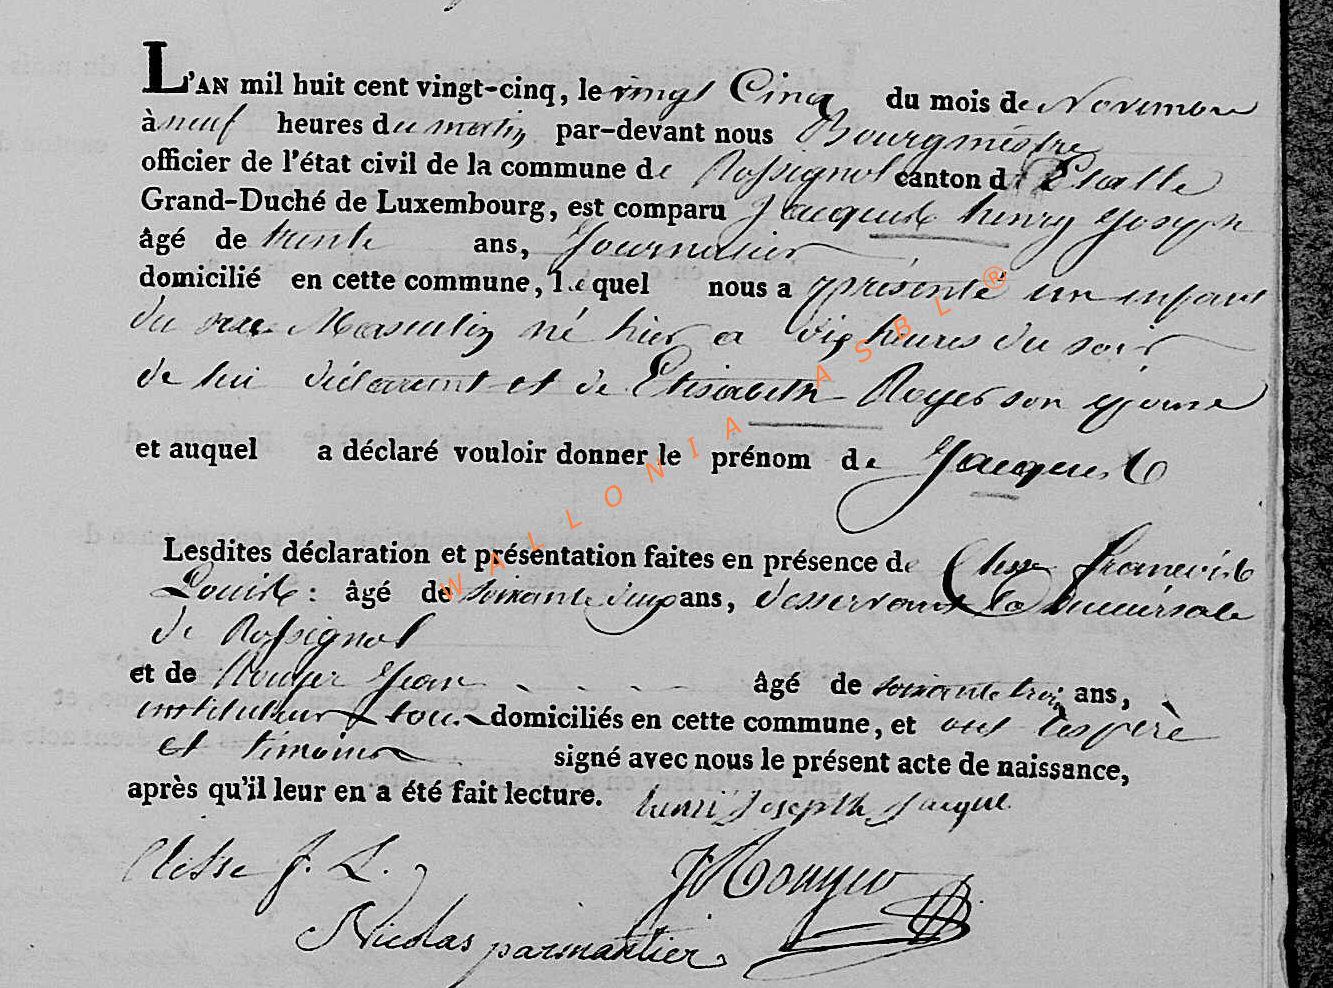 L'AN mil huit cent vingt-cinq, le vingt Cinq du mois de Novembre
à neuf heures du matin par-devant nous Bourgmestre
officier de l'état civil de la commune de Rossignol canton d'Etalle
Grand-Duché de Luxembourg, est comparu Jacques henry Joseph
âgé de trente ans, Journalier
domicilié en cette commune, lequel nous a présenté un enfant
du sexe Masculin né hier a dix heures du soir
de lui déclarant et de Elisabeth Royer son épouse
et auquel a déclaré vouloir donner le prénom de Jacques
Lesdites déclaration et présentation faites en présence de Clesse francois
Louis : âgé de soixante cinq ans, desservant la succursale
de Rossignol
et de Rouyer Jean âgé de soixante trois ans,
instituteur tous domiciliés en cette commune, et ont les père
et témoins signé avec nous le présent acte de naissance,
après qu'il leur en a été fait lecture. henri Joseph Jacque
Clesse f. L. J Rouyer
Nicolas parmantier
WALLONIA ASBL ®